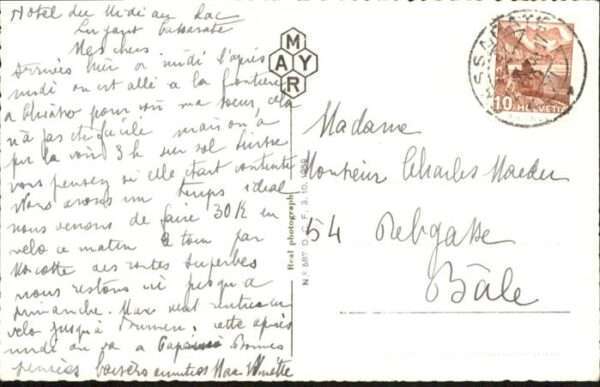 Hôtel du Midi au Lac
Lugano Cassarate
Mes chers.
Arrivés hier à midi l'après
midi on est allé à la frontière
à Chiasso pour voir ma soeur, cela
n'a pas été facile mais on a
pu la voir 3 h sur sol Suisse
vous pensez si elle était contente
Nous avons un temps idéal
nous venons de faire 30 K en
velo ce matin le tour par
des routes superbes
nous restons ici jusqu'à
dimanche. Max veut rentrer en
velo jusqu'à cette après
midi on va à Bonnes
pensées baisers Max
MAYR
Real photograph
N.º 687 D. C. F. 3. 10. 1959
10 HELVETIA
Madame
Monsieur Charles Maeder
54 Rebgasse
Bâle